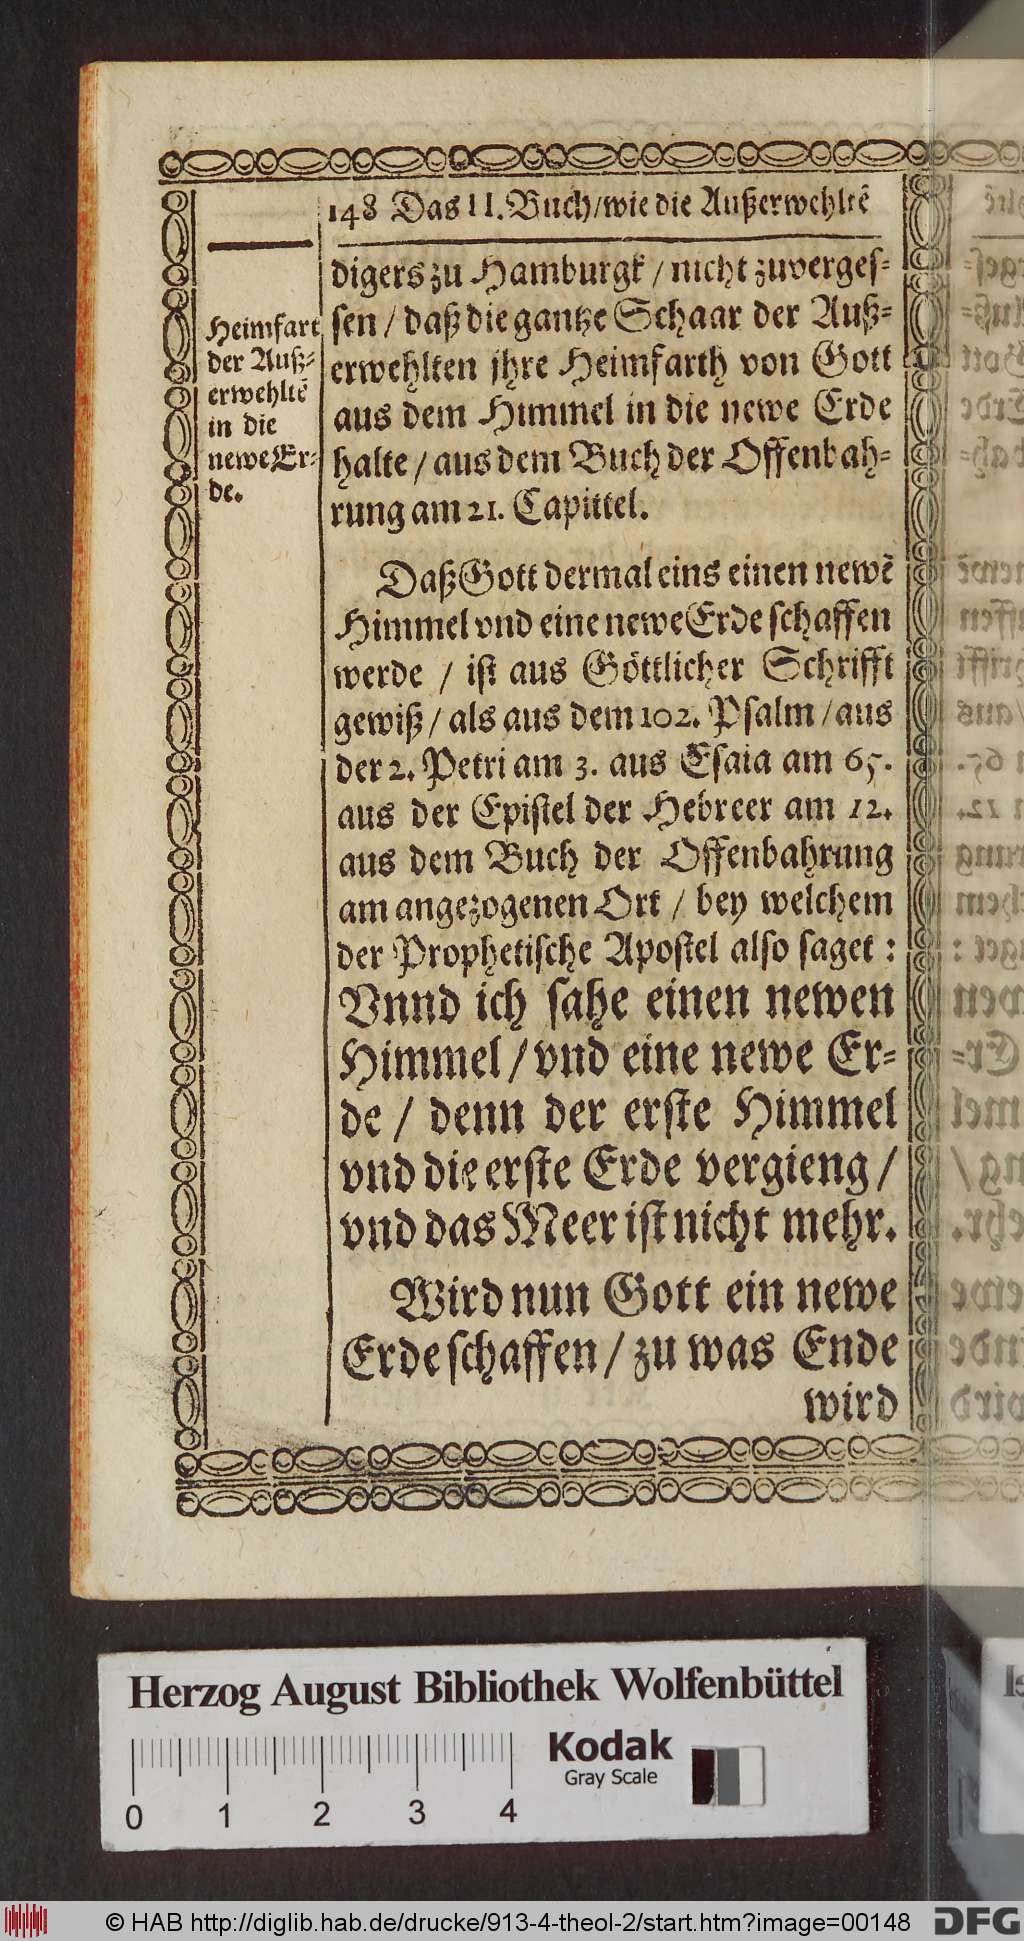 148 Das II. Buch/wie die Außerwehltẽ
digers zu Hamburgk / nicht zuverges-
sen / daß die gantze Schaar der Auß-
erwehlten jhre Heimfarth von Gott
aus dem Himmel in die newe Erde
halte / aus dem Buch der Offenbah-
rung am 21. Capittel.
Heimfart
der Auß-
erwehltẽ
in die
newe Er-
de.
Daß Gott dermal eins einen newẽ
Himmel vnd eine newe Erde schaffen
werde / ist aus Göttlicher Schrifft
gewiß / als aus dem 102. Psalm / aus
der 2. Petri am 3. aus Esaia am 65.
aus der Epistel der Hebreer am 12.
aus dem Buch der Offenbahrung
am angezogenen Ort / bey welchem
der Prophetische Apostel also saget :
Vnnd ich sahe einen newen
Himmel / vnd eine newe Er-
de / denn der erste Himmel
vnd die erste Erde vergieng /
vnd das Meer ist nicht mehr.
Wird nun Gott ein newe
Erde schaffen / zu was Ende
wird
Herzog August Bibliothek Wolfenbüttel
Kodak
Gray Scale
0 1 2 3 4
© HAB http://diglib.hab.de/drucke/913-4-theol-2/start.htm?image=00148
DFG